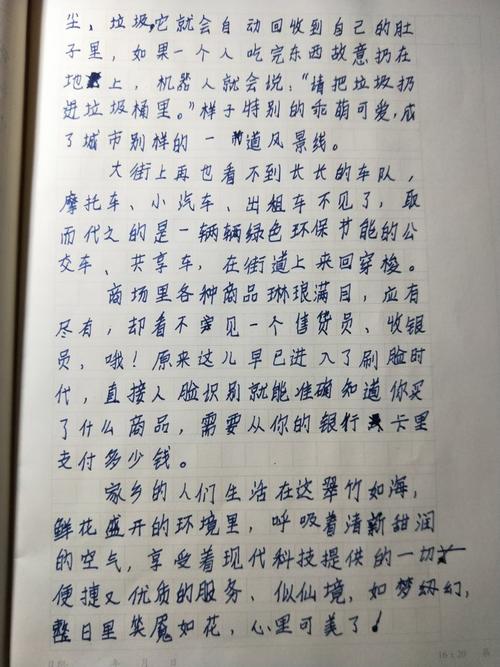 尘、垃圾,它就会自动回收到自己的肚
子里,如果一个人吃完东西故意扔在
地上,机器人就会说:“请把垃圾扔
进垃圾桶里。”样子特别的乖萌可爱,成
了城市别样的一道风景线。
大街上再也看不到长长的车队,
摩托车、小汽车、出租车不见了,取
而代之的是一辆辆绿色环保节能的公
交车、共享车,在街道上来回穿梭。
商场里各种商品琳琅满目,应有
尽有,却看不见一个售货员、收银
员,哦!原来这儿早已进入了刷脸时
代,直接人脸识别就能准确知道你买
了什么商品,需要从你的银行卡里
支付多少钱。
家乡的人们生活在这翠竹如海,
鲜花盛开的环境里,呼吸着清新甜润
的空气,享受着现代科技提供的一切
便捷又优质的服务、似仙境,如梦幻,
整日里笑魇如花,心里可美了!
年 月 日 16×20